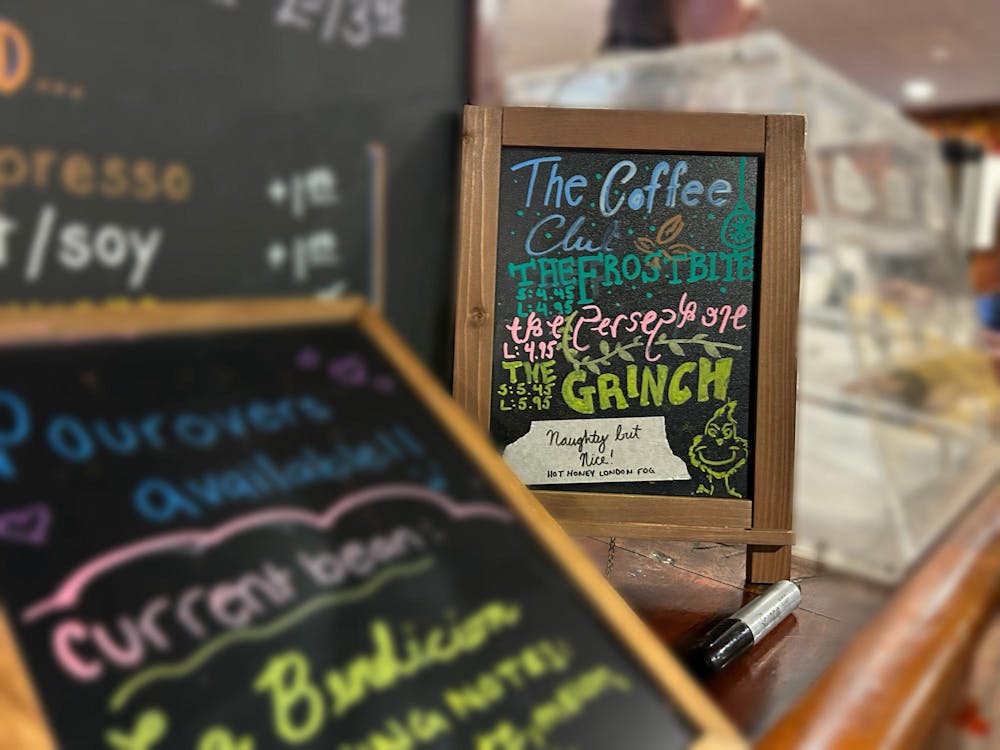 /soy
Pourovers
available!!
Current bean:
Bendicion
NOTES:
The Coffee
Club
THE FROSTBITE
S: 4.45
L: 4.95
the Persephone
L: 4.95
THE GRINCH
S: 5.45
L: 5.95
Naughty but
Nice!
HOT HONEY LONDON FOG